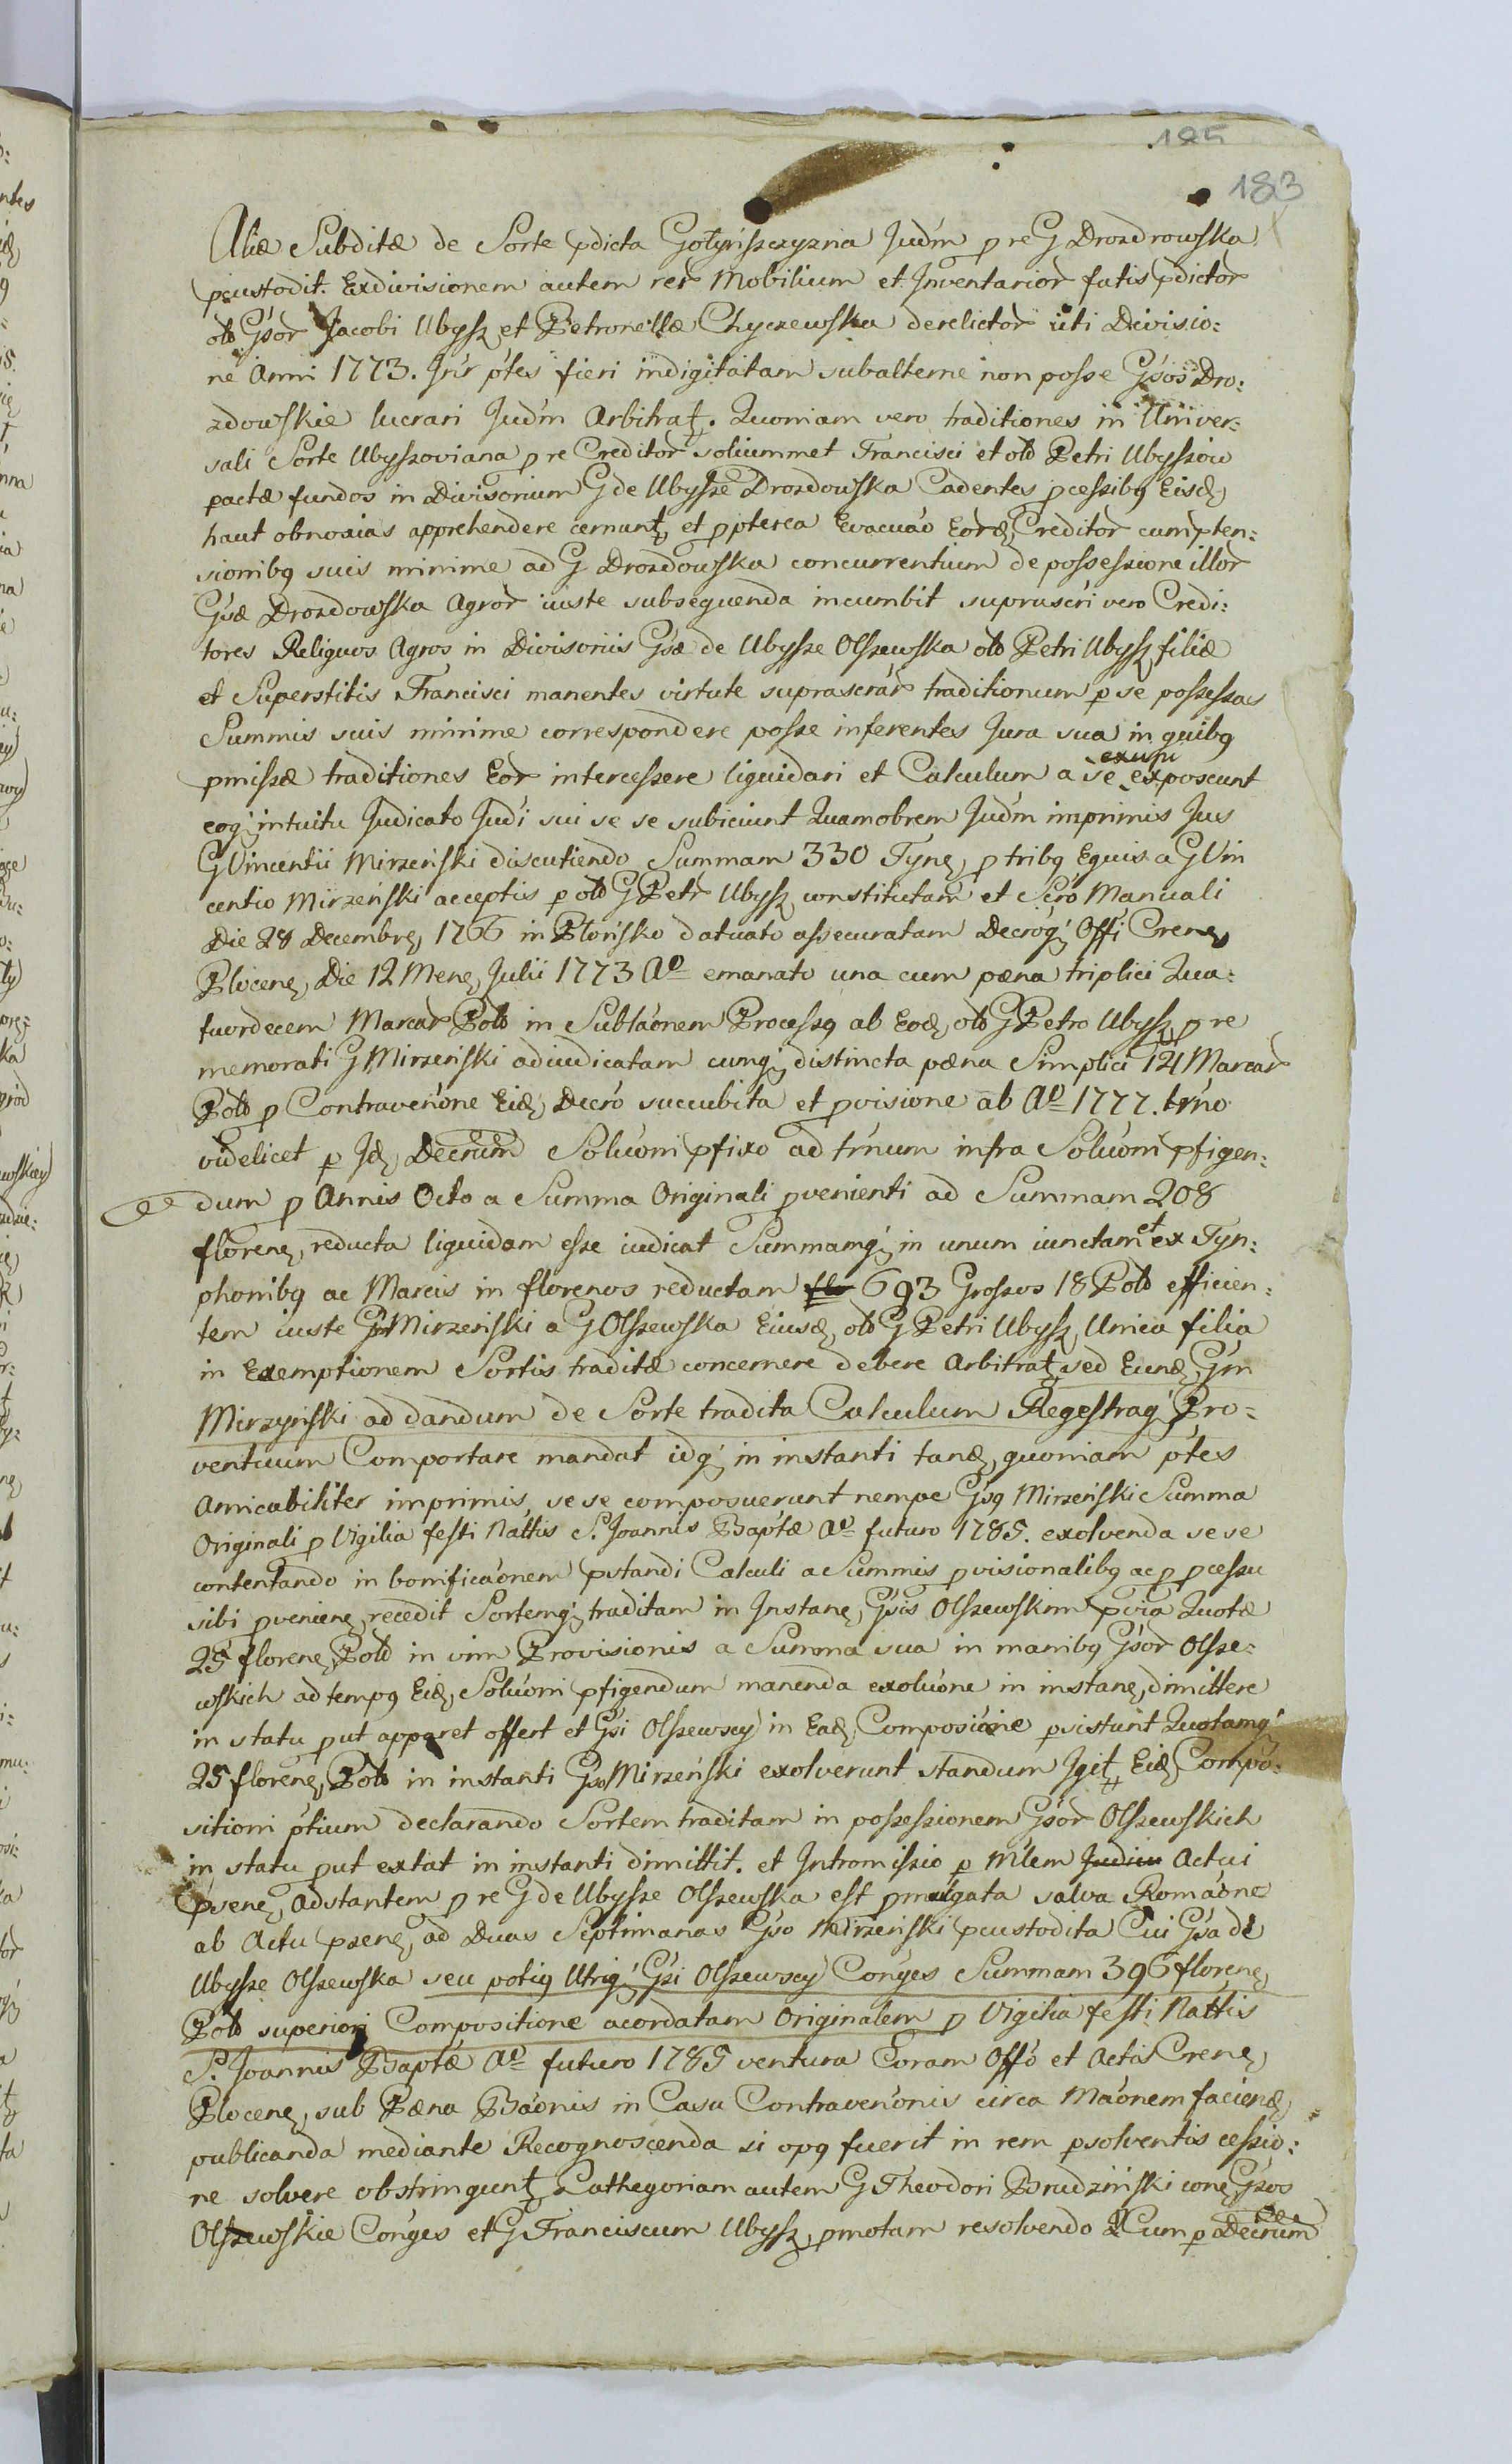 185
183
Aliæ Subditæ de Sorte pdicta Gołyńszczyzna Judm p re G Drozdrowska
pcustodit. Exdivisionem autem rer Mobilium et Inventarior fatis pdictor
olb Gsor Jacobi Ubysz et Petronellæ Chyczewska derelictor uti Divisio:
ne Anni 1773. Inr ptes fieri indigitatam subalterne non posse Gsos Dro:
zdowskie lucrari Judm Arbitrat. Quoniam vero traditiones in Univer:
sali Sorte Ubyszoviana p re Creditor soliummet Francisci et olb Petri Ubyszow
pactæ fundos in Divisorium G de Ubysze Drozdowska Cadentes pcessibq Eisd
haut obnoxias apprehendere cernunt, et ppterea Evacuao Eord Creditor cum pten:
sionibq suis minime ad G Drozdowska concurrentium de possessione illor
Gsæ Drozdowska Agror iuste subsequenda incumbit suprascri vero Credi:
tores Reliquos Agros in Divisoriis Gsæ de Ubysze Olszewska olb Petri Ubysz filiæ
et Superstitis Francisci manentes virtute suprascrar traditionum p se possessas
Summis suis minime correspondere posse inferentes Jura sua in quibq
pmissæ traditiones Eor intercessere liquidari et Calculum a se exposcunt
eoq intuitu Judicato Judi sui se se subiciunt Quamobrem Judm imprimis Jus
G Vincentii Mirzeński discutiendo Summam 330 Tyne, p tribq Equis a G Vin
centio Mirzeński acceptis p olb G Petr Ubysz constitutam et Scro Manuali
Die 28 Decembre, 1766 in Płońsko datuato assecuratam Decroq Offi Crene,
Plocene, Die 12 Mene, Julii 1773 Ao emanato una cum pæna triplici Qua:
tuordecem Marcar Polo in Sublaonem Processq ab Eod, olb G Petro Ubysz p re
memorati G Mirzeński adiudicatam cumq distincta pæna Simplici 14 Marcar
Polo p Contraveńone Eid, Decro succubita et pvisione ab Ao 1777. trno
videlicet p Id, Decrum Soluoni pfixo ad trnum infra Soluoni pfigen:
dum p Annis Octo a Summa Originali pvenienti ad Summam 208
florene, reducta liquidam esse iudicat Summamq in unum iunctam et ex Tyn:
phonibq ac Marcis in florenos reductam flo 693 Grossos 18 Polo efficien:
tem iuste G Mirzeński a G Olszewska Eiusd, olb G Petri Ubysz Unica filia
in Exemptionem Sortis traditæ concernere debere Arbitrat, sed Eund, Gm
Mirzyński ad dandum de Sorte tradita Calculum Regestraq Pro=
ventuum Comportare mandat idq in instanti tand, quoniam ptes
Amicabiliter imprimis se se composuerunt nempe Gsq Mirzeński Summa
Originali p Vigilia festi Nattis S. Joannis Baptæ Ao futuro 1785. exolvenda se se
contentando in bonificaonem pstandi Calculi a Summis pvisionalibq ac p pcessu
sibi pveniene, recedit Sortemq traditam in Instane, Gsis Olszewskim pvia Quotæ
25 florene, Polo in vim Provisionis a Summa sua in manibq Gsor Olsze:
wskich ad tempq Eid, Soluoni pfigendum manenda exoluone in instane, dimittere
in statu put apparet offert et Gsi Olszewscy in Ead, Composiione psistunt Quotamq
25 florene, Polo in instanti Gso Mirzeński exolverunt standum Igit, Eid, Compo:
sitioni ptium declarando Sortem traditam in possessionem Gsor Olszewskich
in statu put extat in instanti dimittit. et Intromissio p Mlem Actui
psene, adstantem p re G de Ubysze Olszewska est pmulgata salva Romaone
ab Actu psene, ad Duas Septimanas Gso Mirzeński pcustodita Cui Gsa de
Ubysze Olszewska seu potiq Utriq Gsi Olszewscy Conges Summam 396 florene,
Polo superiori Compositione acordatam Originalem p Vigilia festi Nattis
S. Joannis Baptæ Ao futuro 1785 ventura Coram Offo et Actis Crene,
Plocene, sub Pæna Baonis in Casu Contraveńonis circa Maonem faciend,
publicanda mediante Recognoscenda si opq fuerit in rem psolventis cessio:
ne solvere obstringunt, Cathegoriam autem G Theodori Brudziński cone, Gsos
Olszewskie Conges et G Franciscum Ubysz pmotam resolvendo Cum p Decrum